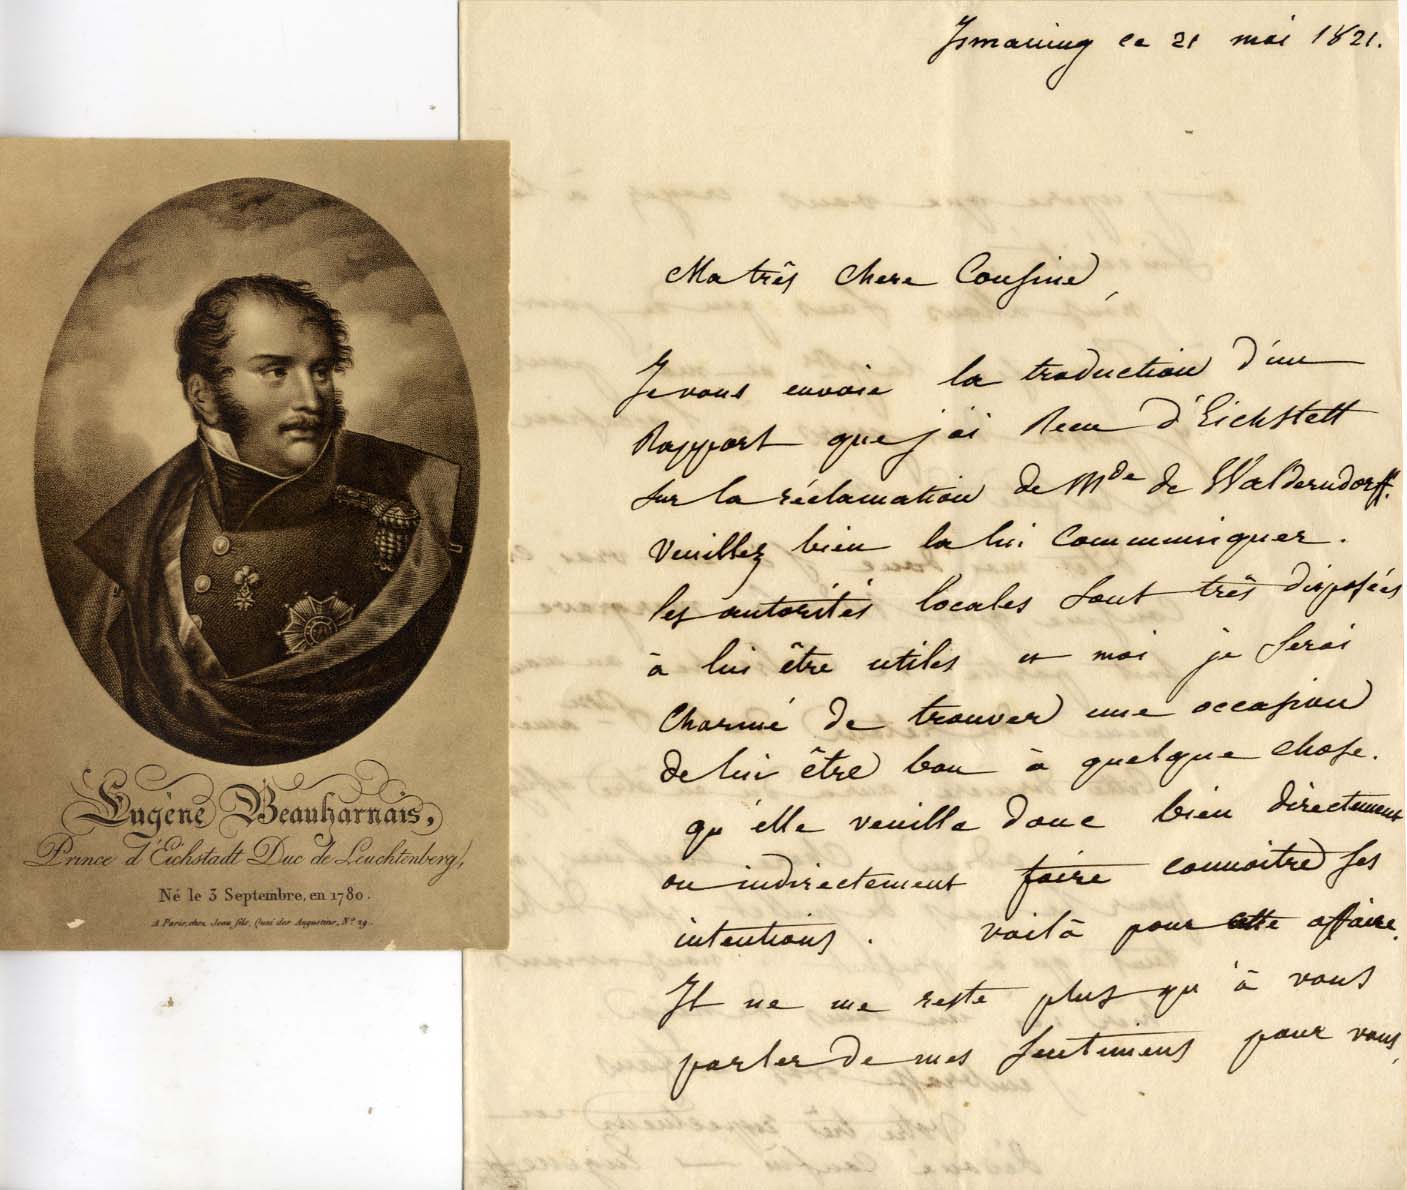 Eugène Beauharnais,
Prince d'Eichstadt Duc de Leuchtenberg,
Né le 3 Septembre, en 1780.
A Paris, chez Jean, fils, Quai des Augustins, N.º 29.
Ismaning ce 21 mai 1821.
Ma très chere Cousine,
Je vous envoie la traduction d'un
Rapport que j'ai Recu d'Eichstett
sur la réclamation de Mde de Walderndorff.
Veuillez bien la lui communiquer.
les autorités locales sont très disposées
à lui être utiles et moi je serai
charmé de trouver une occasion
de lui être bon à quelque chose.
qu'elle veuille donc bien directement
ou indirectement faire connoitre ses
intentions. voilà pour cette affaire.
Il ne me reste plus qu'à vous
parler de mes sentimens pour vous,